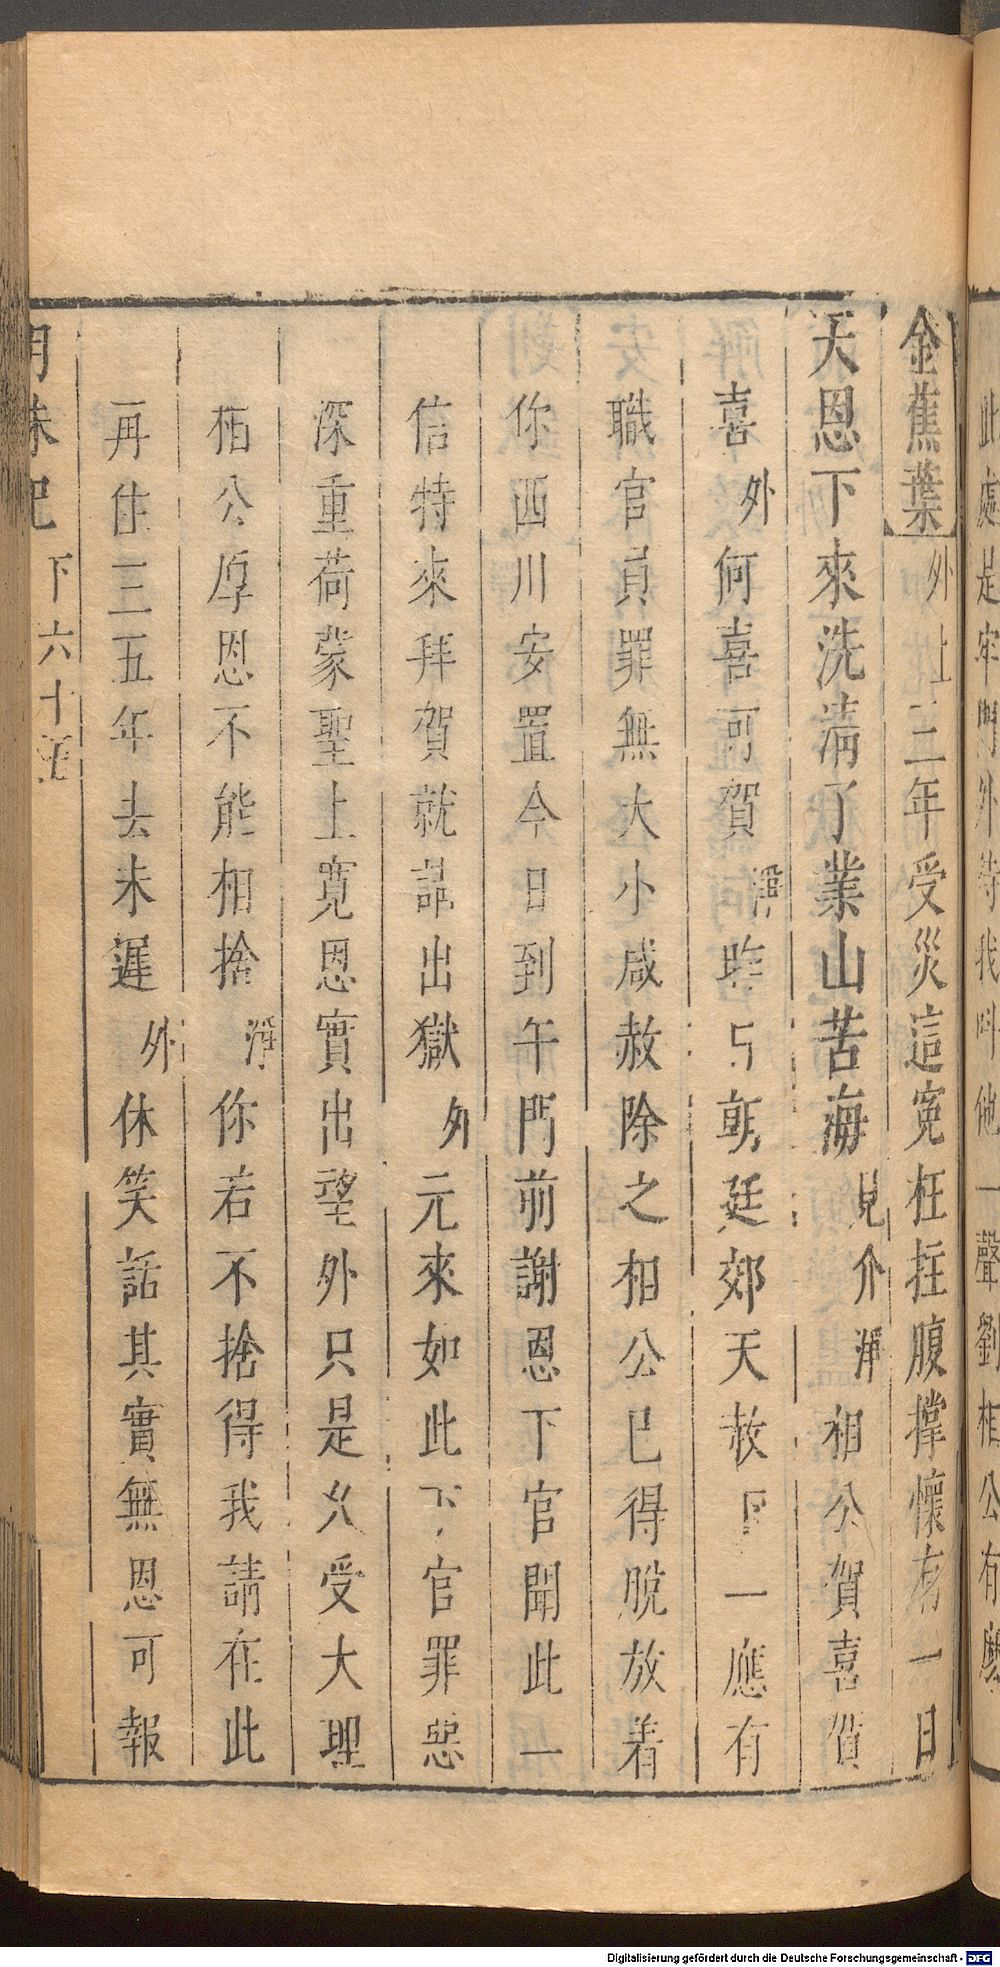 此處是牢門外等我呌他一聲劉相公有麽
金蕉葉外上三年受災這寃枉拄腹撐懷有一日
天恩下來洗淸了業山苦海見介淨相公賀喜賀
喜外何喜可賀淨昨日朝廷郊天赦下一應有
職官員罪無大小咸赦除之相公已得脫放着
你西川安置今日到午門前謝恩下官聞此一
信特來拜賀就請出獄外元來如此下官罪惡
深重荷蒙聖上寬恩實出望外只是久受大理
相公厚恩不能相捨淨你若不捨得我請在此
再住三五年去未遲外休笑話其實無恩可報
明珠記 下六十
Digitalisierung gefördert durch die Deutsche Forschungsgemeinschaft - DFG